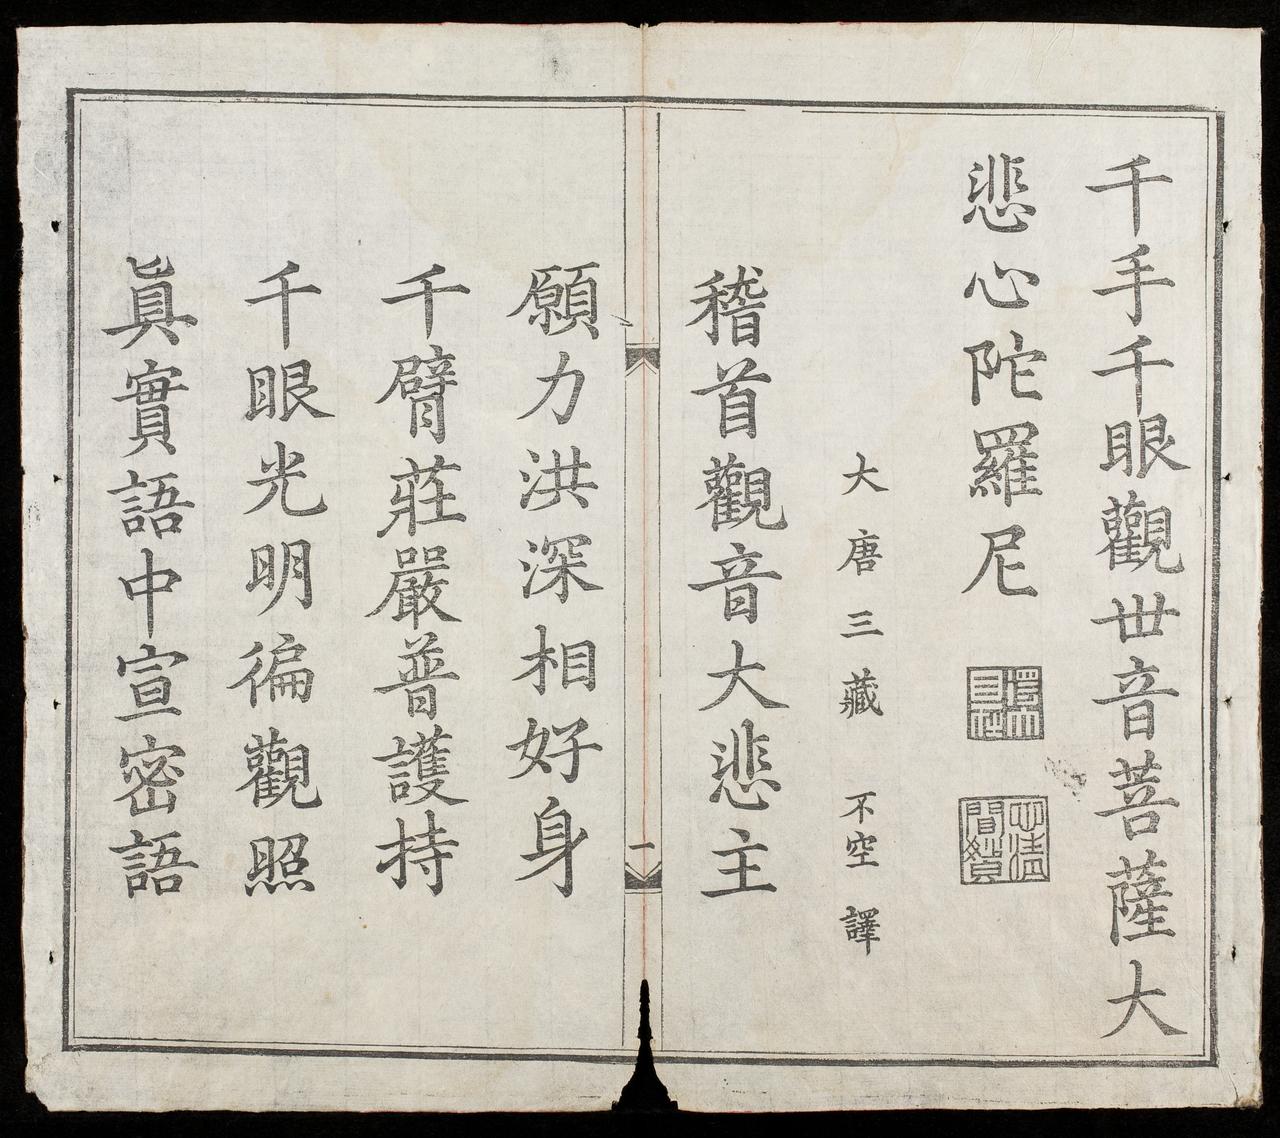 千手千眼觀世音菩薩大
悲心陀羅尼
大唐三藏 不空 譯
稽首觀音大悲主
一
願力洪深相好身
千臂莊嚴普護持
千眼光明徧觀照
眞實語中宣密語